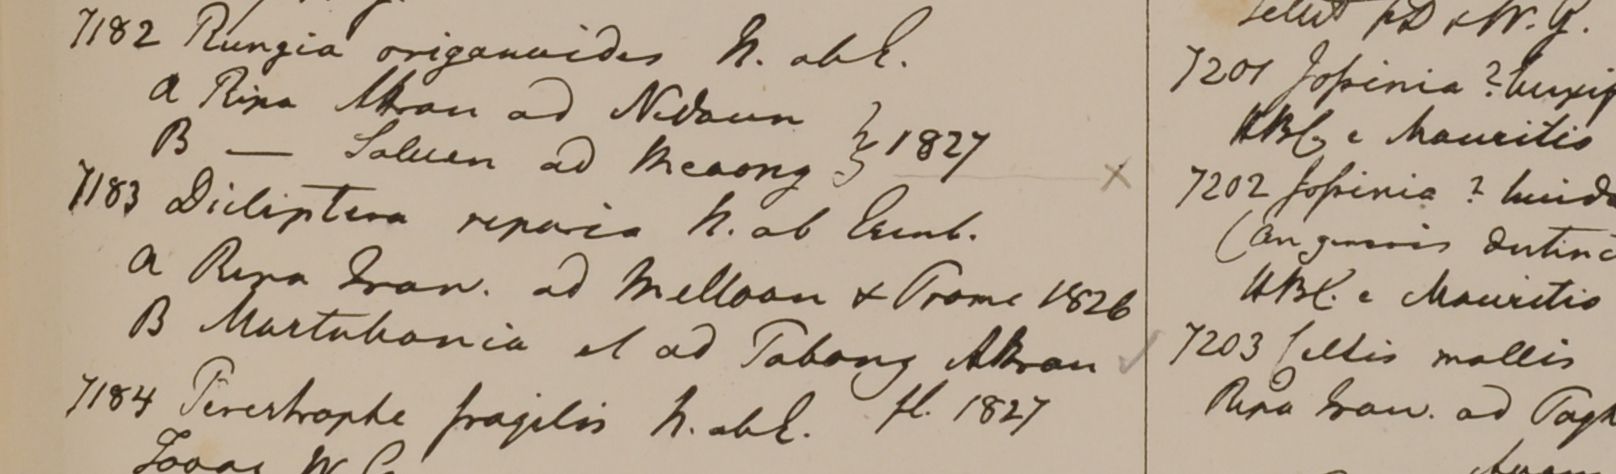 7182 Rungia origanoides N. ab E.
a Ripa Attran ad Nidaun
B — Saluen ad Meaong } 1827
7183 Dicliptera reparia N. ab Esenb.
a Ripa Irau. ad Melloan & Prome 1826
B Martabania et ad Tabong Attran
7184 Peristrophe fragilis N. ab E. fl. 1827
W.
7201 Josinia ?
HBC e Mauritio
7202 Josinia ?
(an generis distinc
HBC. e Mauritio
7203 Celtis mollis
Ripa Irau. ad Pagh